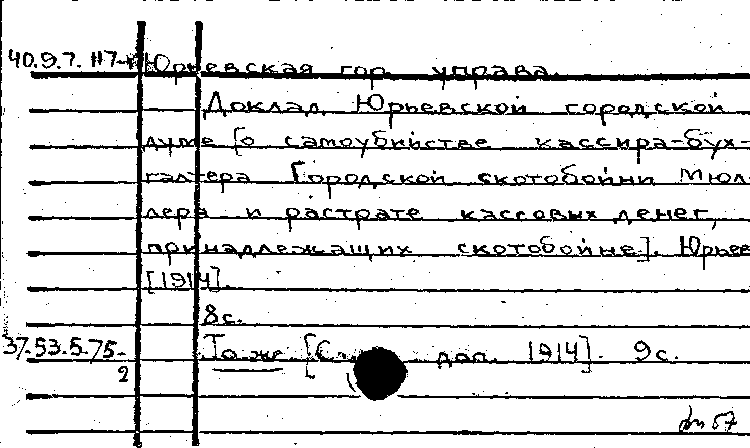 40.9.7. 117-
Юрьевская гор. управа.
Доклад Юрьевской городской
думе [о самоубийстве кассира-бух-
галтера Городской скотобойни Мюл-
лера и растрате кассовых денег,
принадлежащих скотобойне]. Юрьев
[1914].
8с.
37.53.5.75- То же доп. 1914]. 9с.
2
57